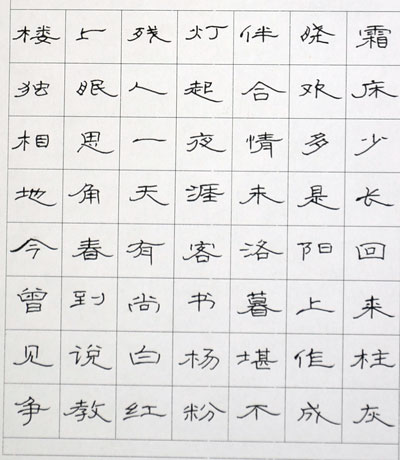 楼上残灯伴晓霜
独眠人起合欢床
相思一夜情多少
地角天涯未是长
今春有客洛阳回
曾到尚书暮上来
见说白杨堪作柱
争教红粉不成灰